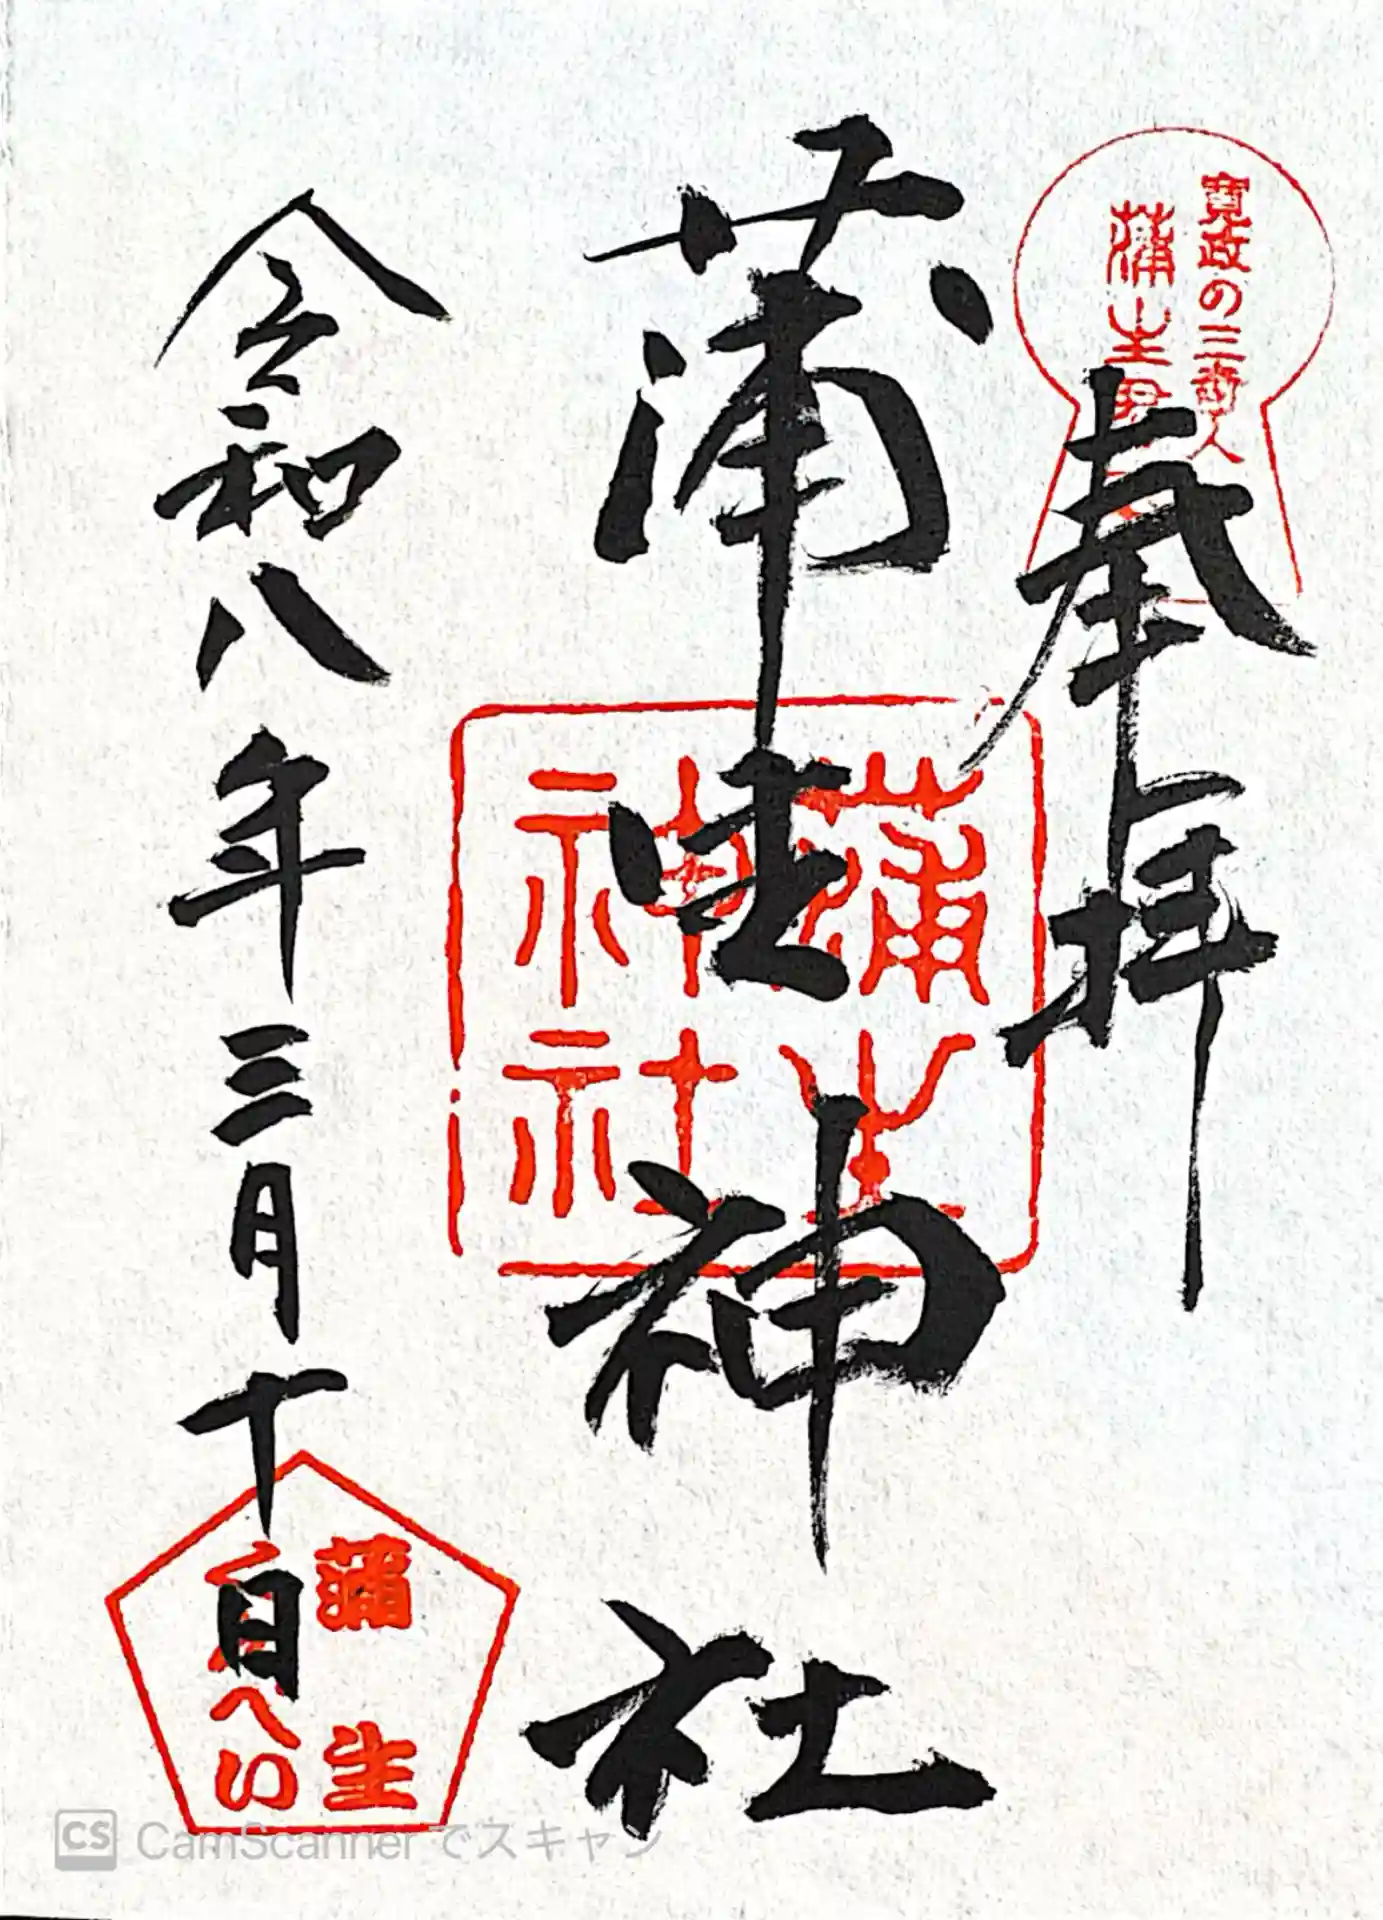 寛政の三奇人
蒲生君
奉拝
蒲生神社
蒲生
神社
令和八年三月十日
蒲生
くんぺい
CS CamScanner でスキャン